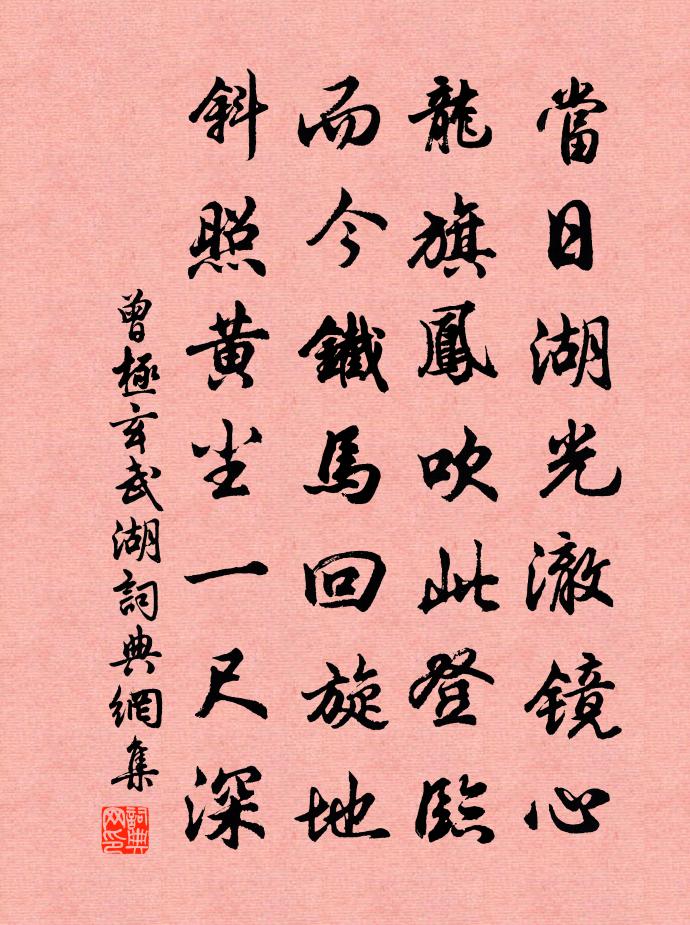 當日湖光澈鏡心
龍旗鳳吹此登臨
而今鐵馬回旋地
斜照黄尘一尺深
曾極玄武湖詞典網集
詞典网印